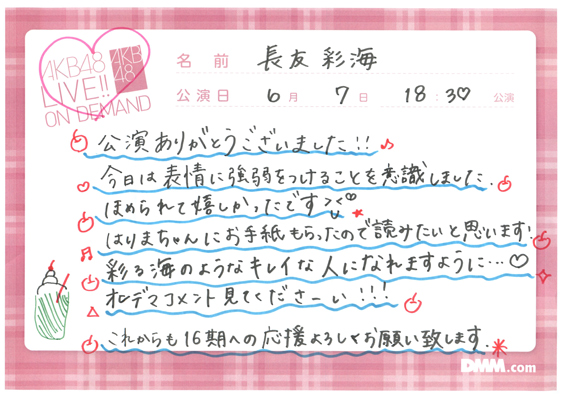 AKB48
LIVE!!
ON DEMAND
AKB
48
名前 長友彩海
公演日 6月 7日 18:30 公演
公演ありがとうございました!!
今日は表情に強弱をつけることを意識しました.
ほめられて嬉しかったです><
はりまちゃんにお手紙もらったので読みたいと思います!
彩る海のようなキレイな人になれますように…♡
オンデマコメント見てくださーい!!!
これからも16期への応援よろしくお願い致します.
DMM.com